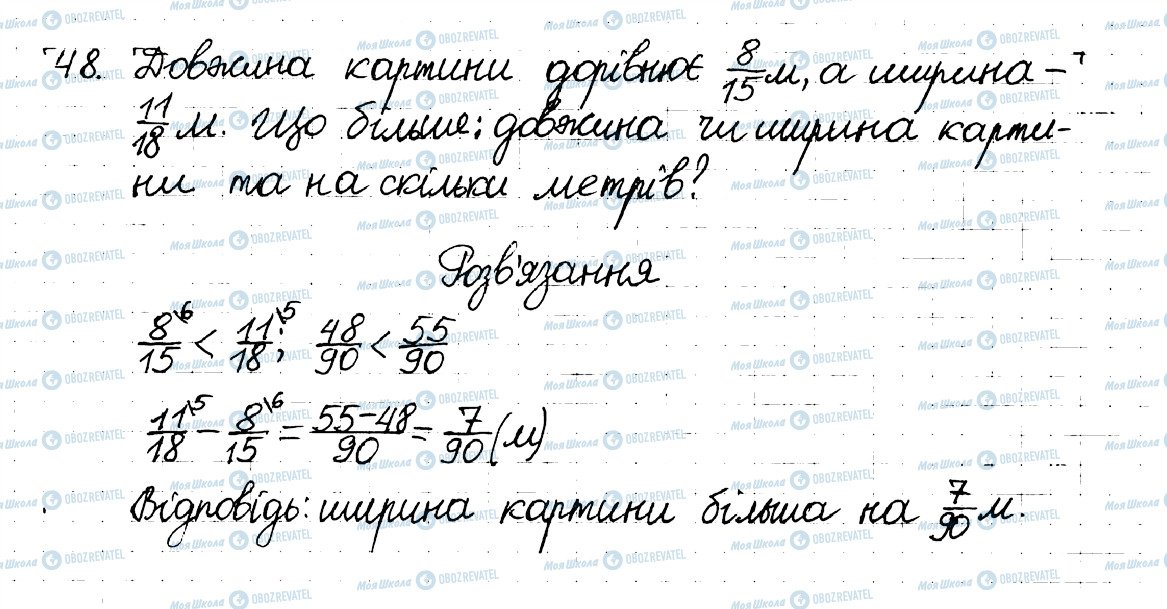 48. Довжина картини дорівнює 8/15 м, а ширина –
11/18 м. Що більше: довжина чи ширина карти-
ни та на скільки метрів?
Розв'язання
8\6/15 < 11\5/18; 48/90 < 55/90
11\5/18 – 8\6/15 = 55–48/90 = 7/90 (м)
Відповідь: ширина картини більша на 7/90 м.